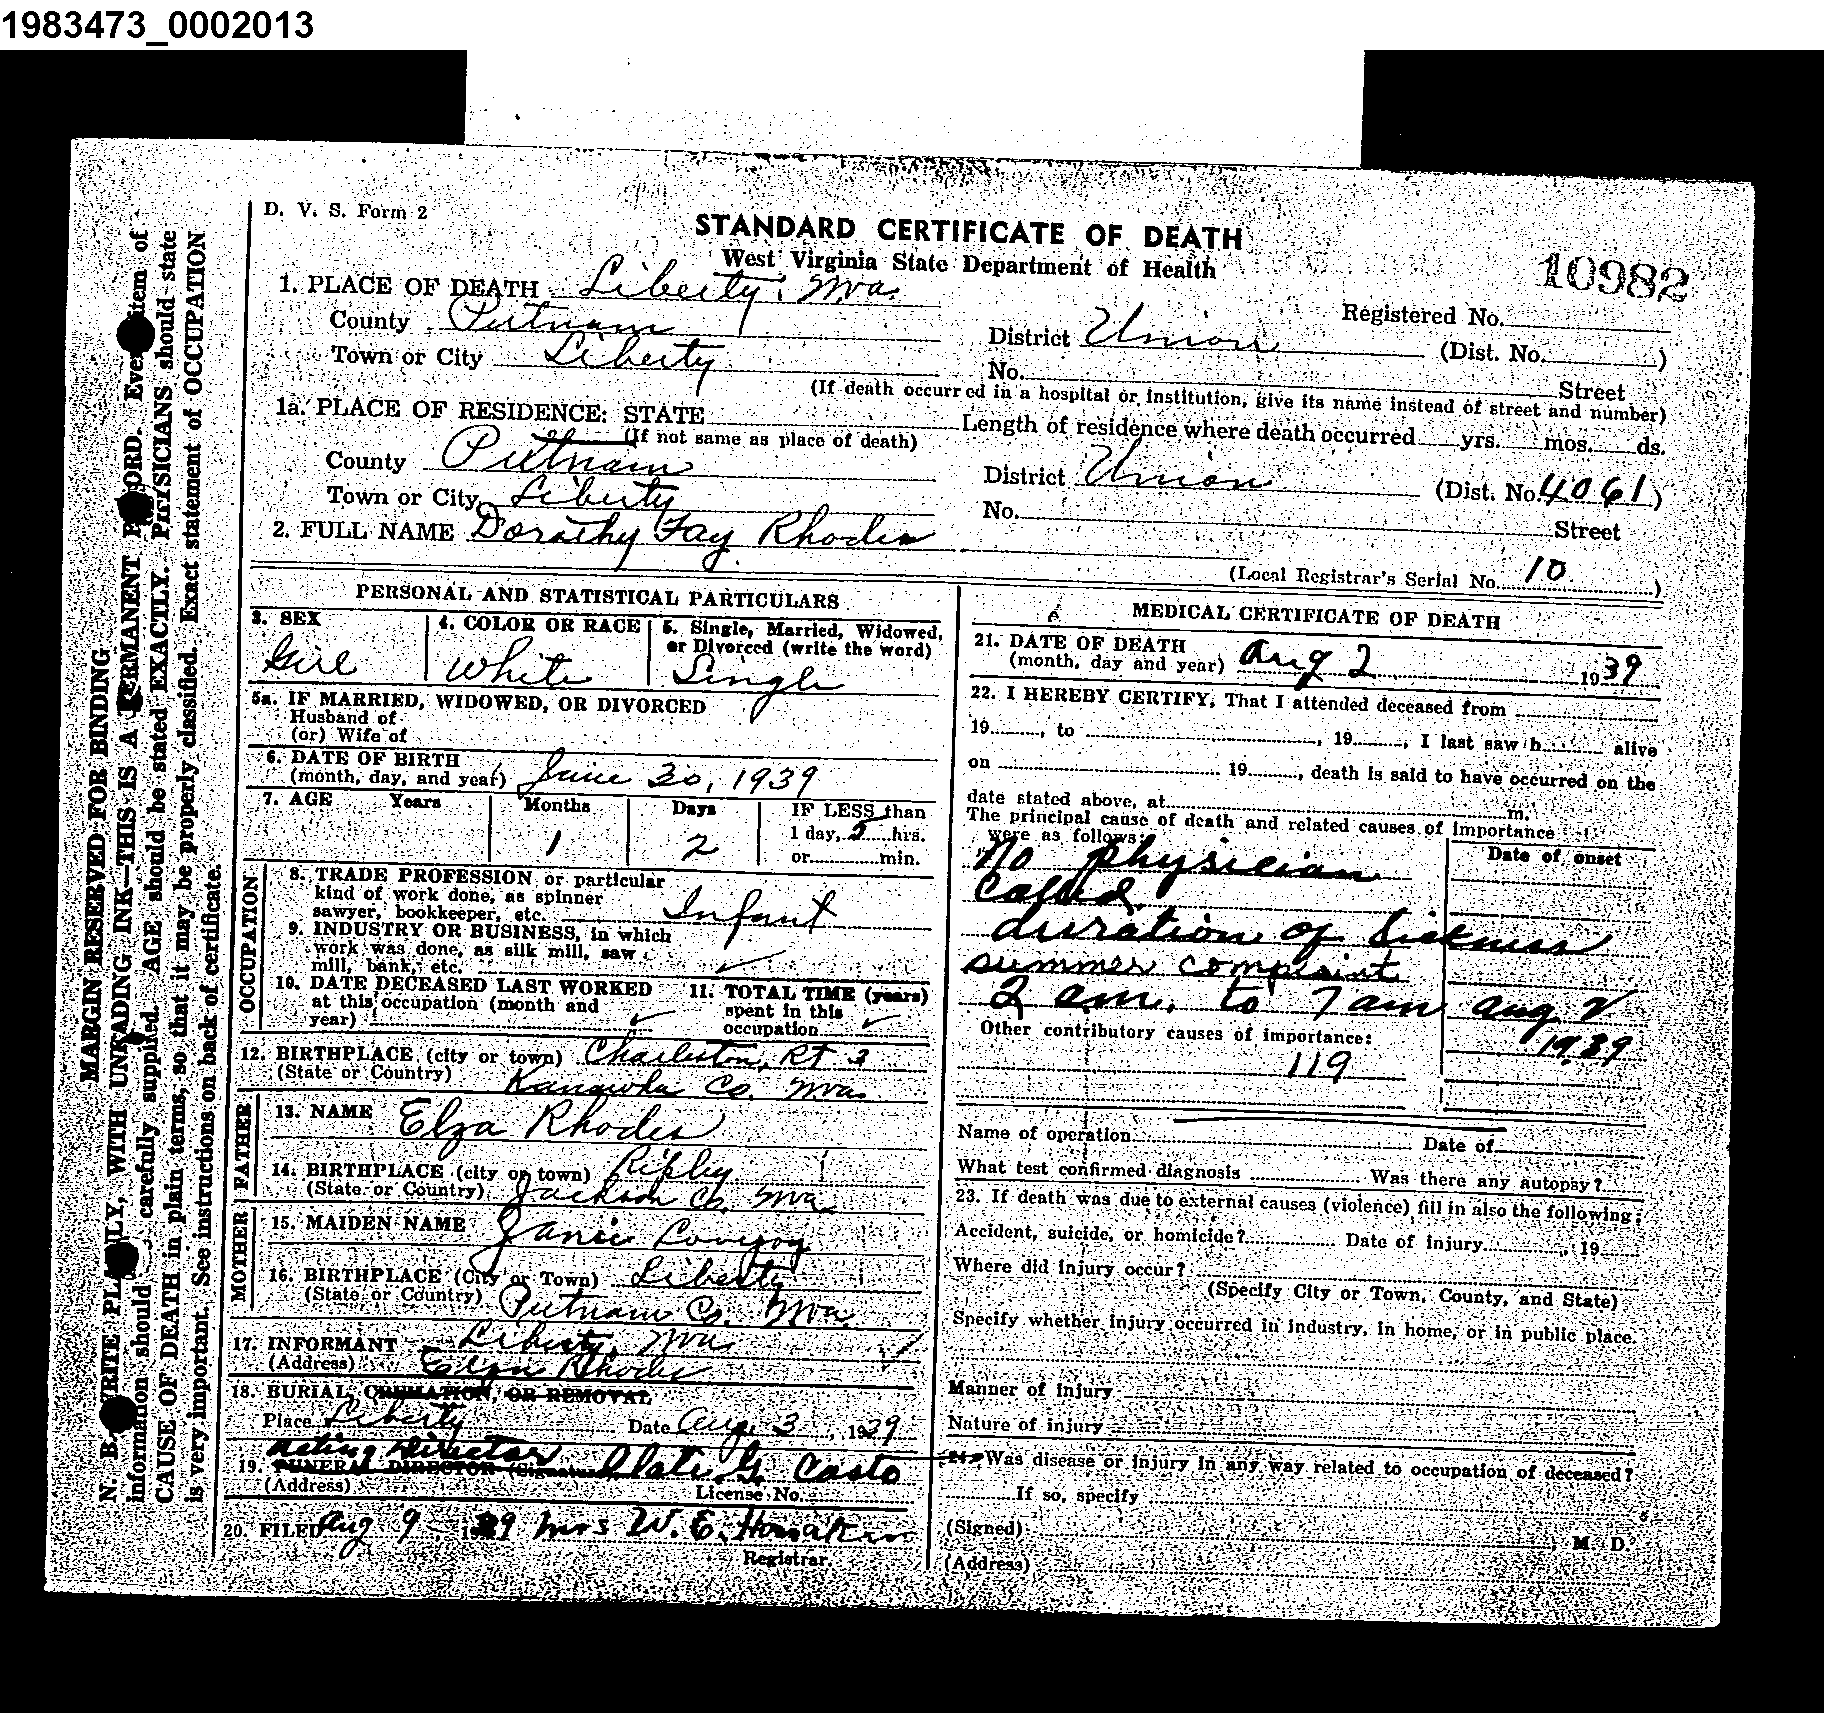 1983473_0002013
D. V. S. Form 2
STANDARD CERTIFICATE OF DEATH
West Virginia State Department of Health
10982
1. PLACE OF DEATH Liberty, Wva.
Registered No.
County Putnam
District Union (Dist. No. )
Town or City Liberty
No. Street
(If death occurred in a hospital or institution, give its name instead of street and number)
1a. PLACE OF RESIDENCE: STATE
Length of residence where death occurred yrs. mos. ds.
(If not same as place of death)
County Putnam
District Union (Dist. No. 4061)
Town or City Liberty
No. Street
2. FULL NAME Dorathy Fay Rhodes
(Local Registrar's Serial No. 10 )
PERSONAL AND STATISTICAL PARTICULARS
3. SEX
Girl
4. COLOR OR RACE
White
5. Single, Married, Widowed,
or Divorced (write the word)
Single
5a. IF MARRIED, WIDOWED, OR DIVORCED
Husband of
(or) Wife of
6. DATE OF BIRTH
(month, day, and year) June 30, 1939
7. AGE Years Months Days IF LESS than
1 2 1 day, 5 hrs.
or min.
OCCUPATION
8. TRADE PROFESSION or particular
kind of work done, as spinner
sawyer, bookkeeper, etc. Infant
9. INDUSTRY OR BUSINESS, in which
work was done, as silk mill, saw
mill, bank, etc.
10. DATE DECEASED LAST WORKED
at this occupation (month and
year)
11. TOTAL TIME (years)
spent in this
occupation
12. BIRTHPLACE (city or town) Charleston, Rt 3
(State or Country) Kanawha Co. Wva.
FATHER
13. NAME Elza Rhodes
14. BIRTHPLACE (city or town) Ripley
(State or Country) Jackson Co. Wva
MOTHER
15. MAIDEN NAME Janie Lovejoy
16. BIRTHPLACE (City or Town) Liberty
(State or Country) Putnam Co. Wva.
17. INFORMANT Liberty, Wva
(Address) Elza Rhodes
18. BURIAL, CREMATION, OR REMOVAL
Place Liberty Date Aug. 3, 1939
Acting Director
19. FUNERAL DIRECTOR (Signature) G. Casto
(Address) License No.
20. FILED Aug 9 1939 Mrs W. E. Honaker
Registrar.
MEDICAL CERTIFICATE OF DEATH
21. DATE OF DEATH
(month, day and year) Aug 2 1939
22. I HEREBY CERTIFY, That I attended deceased from
19 , to , 19 , I last saw h alive
on 19 , death is said to have occurred on the
date stated above, at m.
The principal cause of death and related causes of importance
were as follows:
Date of onset
No physician
Called
duration of Sickness
summer complaint
2 am. to 7 am Aug 2
1939
Other contributory causes of importance:
119
Name of operation Date of
What test confirmed diagnosis Was there any autopsy?
23. If death was due to external causes (violence) fill in also the following:
Accident, suicide, or homicide? Date of injury , 19
Where did injury occur?
(Specify City or Town, County, and State)
Specify whether injury occurred in industry, in home, or in public place.
Manner of injury
Nature of injury
24. Was disease or injury in any way related to occupation of deceased?
If so, specify
(Signed) , M. D.
(Address)
MARGIN RESERVED FOR BINDING
N. B. WRITE PLAINLY, WITH UNFADING INK—THIS IS A PERMANENT RECORD. Every item of
information should be carefully supplied. AGE should be stated EXACTLY. PHYSICIANS should state
CAUSE OF DEATH in plain terms, so that it may be properly classified. Exact statement of OCCUPATION
is very important. See instructions on back of certificate.